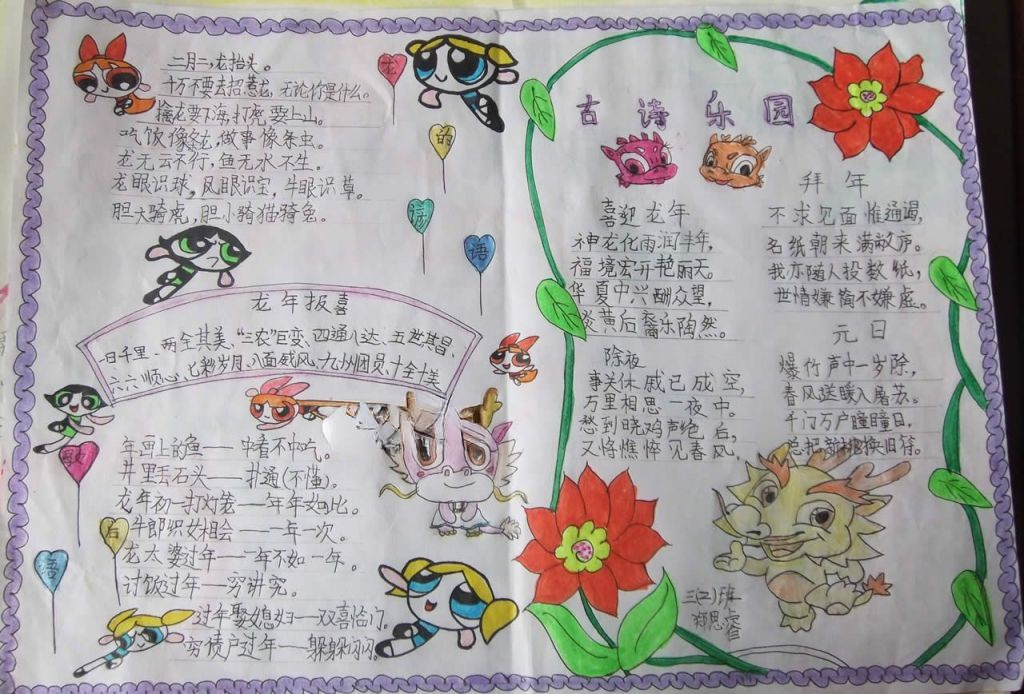 二月二,龙抬头。
十万不要去招惹龙,无论什是什么。
擒龙要下海,打虎要上山。
吃饭像条龙,做事像条虫。
龙无云不行,鱼无水不生。
龙眼识珠,凤眼识宝,牛眼识草。
胆大骑虎,胆小骑猫骑兔。
龙的谚语
龙年报喜
一日千里、两全其美、“三农”巨变、四通八达、五世其昌、
六六顺心、七彩岁月、八面威风、九州团员、十全十美
歇后语
年画上的鱼——中看不中吃。
井里丢石头——扑通(不懂)。
龙年初一打灯笼——年年如此。
牛郎织女相会——一年一次。
龙太婆过年——一年不如一年。
讨饭过年——穷讲究。
过年娶媳妇——双喜临门。
穷债户过年——躲躲闪闪。
古诗乐园
喜迎龙年
神龙化雨润丰年,
福境宏开艳丽天。
华夏中兴酬众望,
炎黄后裔乐陶然。
除夜
事关休戚已成空,
万里相思一夜中。
愁到晓鸡声绝后,
又将憔悴见春风。
拜年
不求见面惟通谒,
名纸朝来满敝庐。
我亦随人投数纸,
世情嫌简不嫌虚。
元日
爆竹声中一岁除,
春风送暖入屠苏。
千门万户瞳瞳日,
总把新桃换旧符。
三(二)班